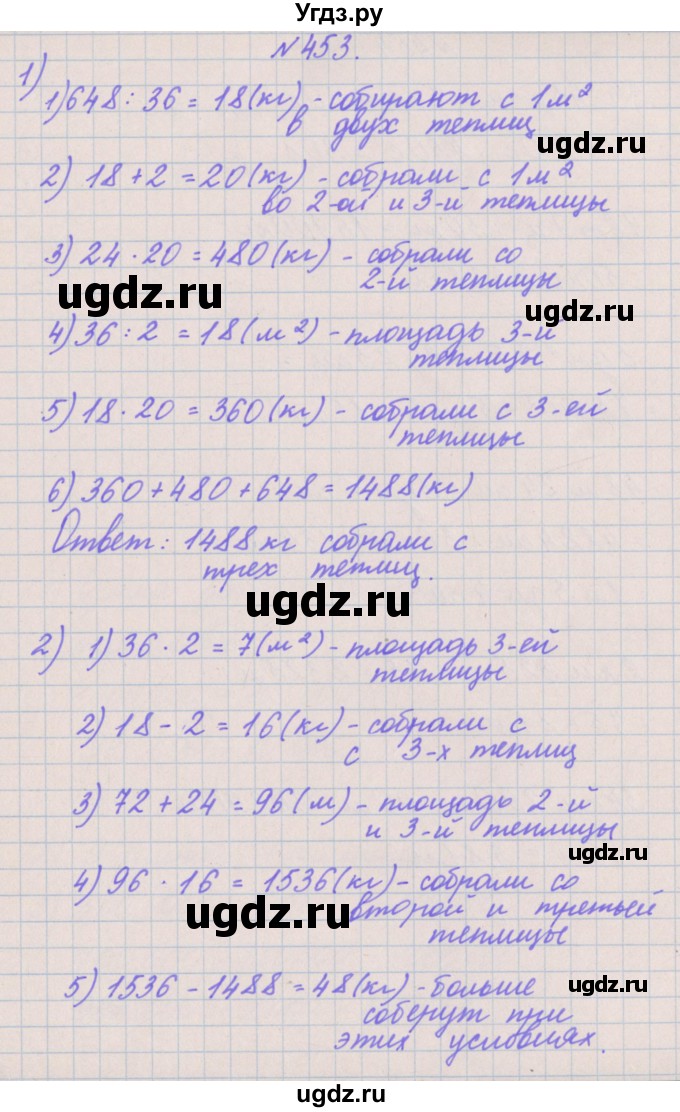 Угдз.ру
N 453.
1)
1) 648 : 36 = 18 (кг) - собирают с 1 м²
в двух теплиц
ugdz.ru
2) 18 + 2 = 20 (кг) - собрали с 1 м²
во 2-ой и 3-й теплицы
3) 24 · 20 = 480 (кг) - собрали со
2-й теплицы
ugdz.ru
ugdz.ru
4) 36 : 2 = 18 (м²) - площадь 3-й
теплицы
5) 18 · 20 = 360 (кг) - собрали с 3-ей
теплицы
6) 360 + 480 + 648 = 1488 (кг)
Ответ: 1488 кг собрали с
трех теплиц.
ugdz.ru
ugdz.ru
2) 1) 36 · 2 = 7 (м²) - площадь 3-ей
теплицы
2) 18 - 2 = 16 (кг) - собрали с
с 3-х теплиц
3) 72 + 24 = 96 (м) - площадь 2-й
и 3-й теплицы
ugdz.ru
4) 96 · 16 = 1536 (кг) - собрали со
второй и третьей
теплицы
ugdz.ru
5) 1536 - 1488 = 48 (кг) - больше
соберут при
этих условиях.
ugdz.ru
ugdz.ru